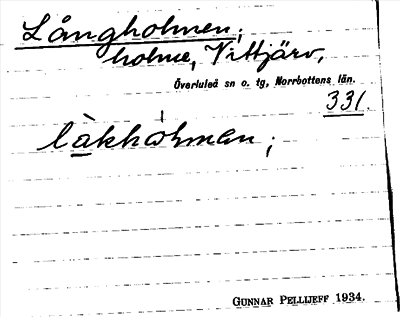 Långholmen;
holme, Vittjärv,
Överluleå sn o. tg, Norrbottens län.
331.
làkkhólman;
GUNNAR PELLIJEFF 1934.